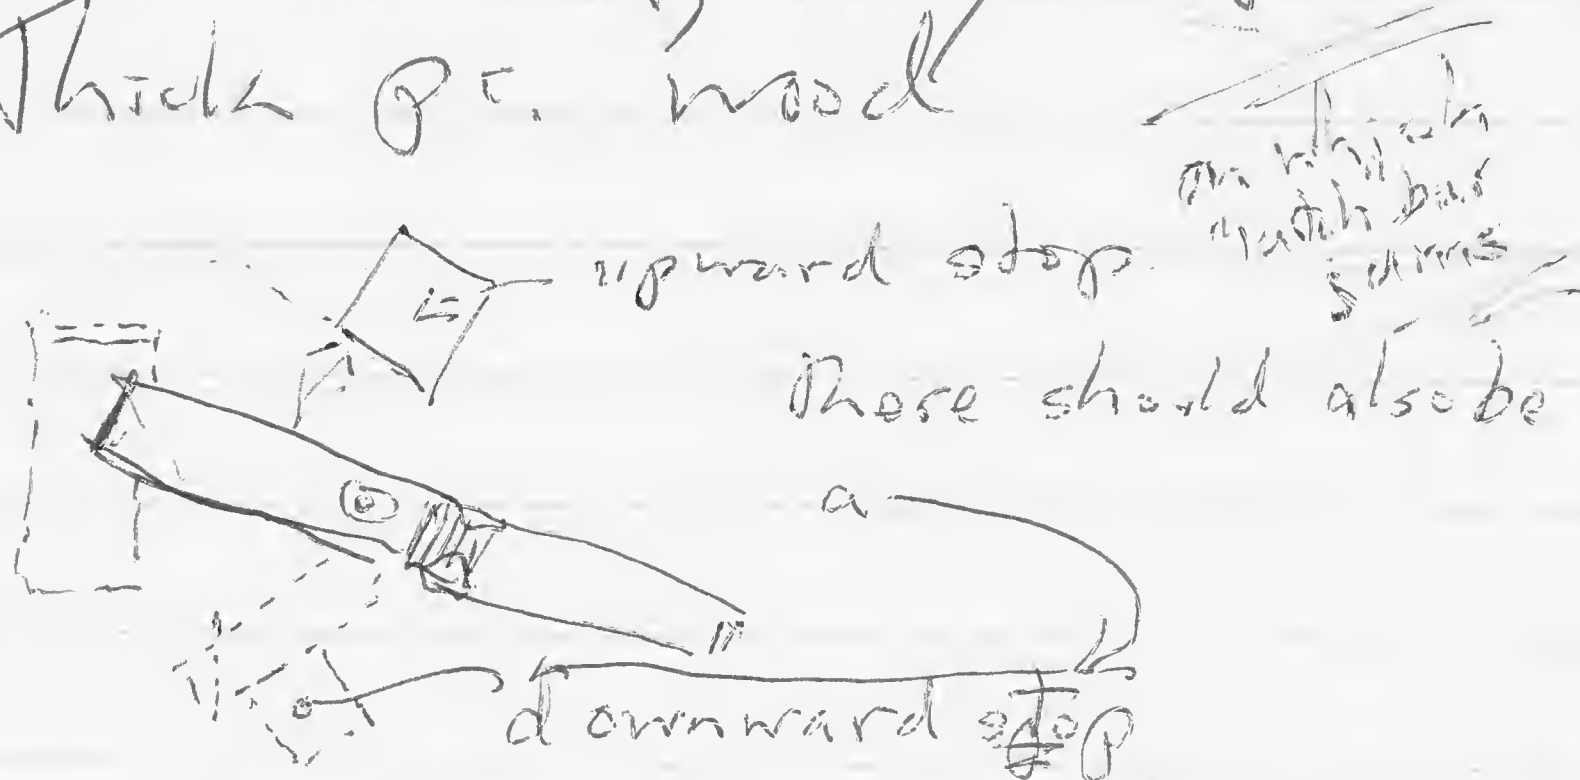 Thick pc. wood
on which
catch bar
jams
upward stop.
There should also be
a
downward stop